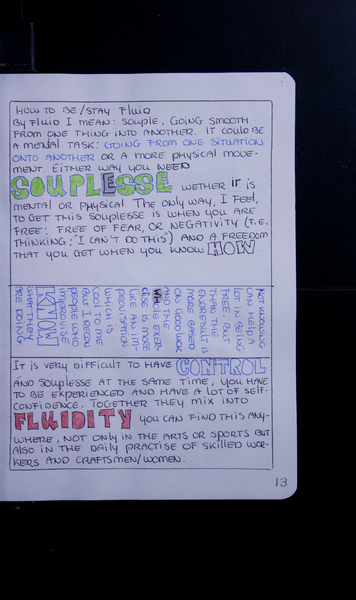 HOW TO BE/STAY FLUID
BY FLUID I MEAN: SOUPLE, GOING SMOOTH
FROM ONE THING INTO ANOTHER. IT COULD BE
A MENTAL TASK: GOING FROM ONE SITUATION
ONTO ANOTHER OR A MORE PHYSICAL MOVE-
MENT. EITHER WAY YOU NEED
SOUPLESSE WETHER IT IS
MENTAL OR PHYSICAL. THE ONLY WAY, I FEEL,
TO GET THIS SOUPLESSE IS WHEN YOU ARE
FREE: FREE OF FEAR, OR NEGATIVITY (F.E.
THINKING; 'I CAN'T DO THIS') AND A FREEDOM
THAT YOU GET WHEN YOU KNOW HOW.
NOT KNOWING
CAN HELP A
LOT IN BEING
FREE, BUT
THAN THE
ENDRESULT IS
MORE BASED
ON GOOD LUCK
AND THE
WHOLE EXER-
CISE IS MORE
LIKE AN IM-
PROVISATION
WHICH IS
COOL TOO
BUT I RECON
PEOPLE WHO
IMPROVISE
KNOW
WHAT THEY
ARE DOING
IT IS VERY DIFFICULT TO HAVE CONTROL
AND SOUPLESSE AT THE SAME TIME, YOU HAVE
TO BE EXPERIENCED AND HAVE A LOT OF SELF-
CONFIDENCE. TOGETHER THEY MIX INTO
FLUIDITY YOU CAN FIND THIS ANY-
WHERE, NOT ONLY IN THE ARTS OR SPORTS BUT
ALSO IN THE DAILY PRACTISE OF SKILLED WOR-
KERS AND CRAFTSMEN/WOMEN.
13